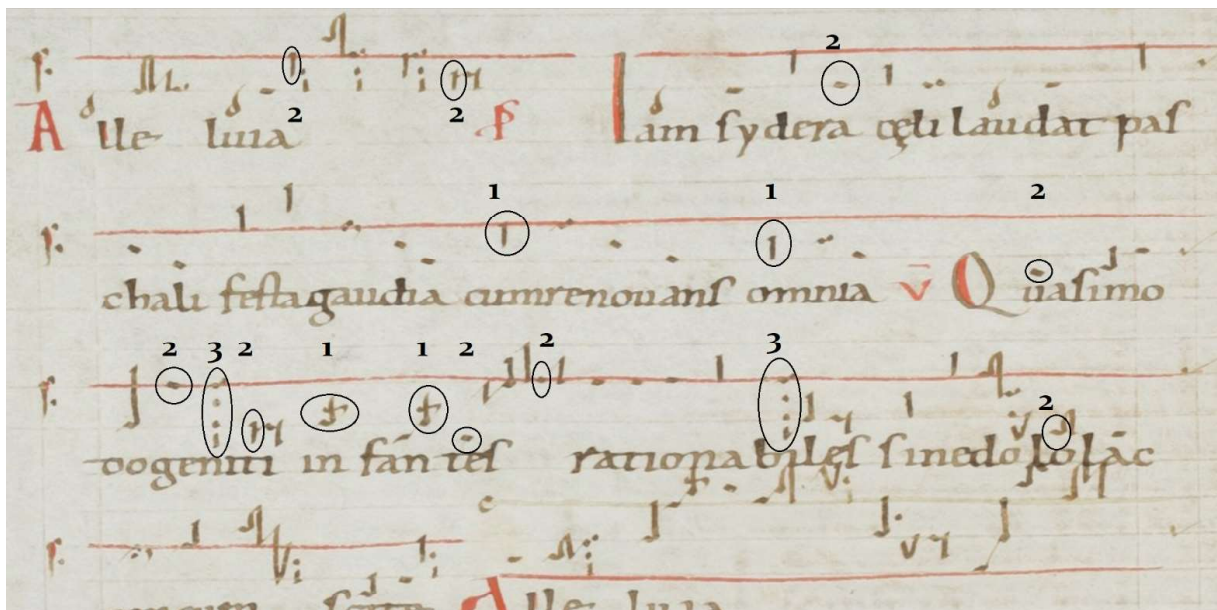 2
Alleluia P Iam sydera cęli laudat pas
2 2
1 1 2
chali festa gaudia cum renouans omnia v Quasimo
2 3 2 1 1 2 2 3
2
do geniti in fantes rationabiles sine dolo lac
c
Alle luia